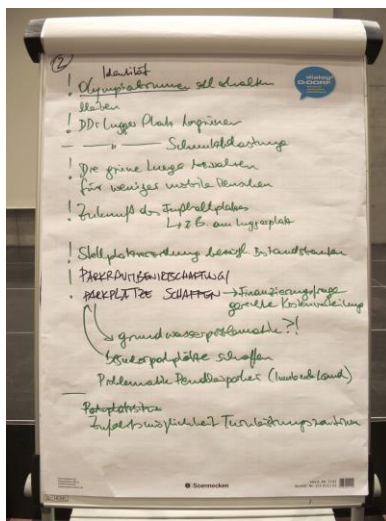 2
Identität
! Olympiabrunnen soll erhalten
bleiben
! DDr. Lugger Platz begrünen
— " — Schmutzbelastung
! Die grüne Lunge bewahren
für weniger mobile Menschen
! Zukunft des Fußballplatzes
↳ z.B. am Luggerplatz
! Stellplatzverordnung bereich Bestandsbauten
! PARKRAUMBEWIRTSCHAFTUNG/
! PARKPLÄTZE SCHAFFEN → Finanzierungsfrage
gerechte Kostenverteilung
→ grundwasserproblematik?!
Besucherparkplätze schaffen
Problematik Pendlerparker (Land)
Zufahrtsmöglichkeit Turnleistungszentrum
dialog
O-DORF
Soennecken